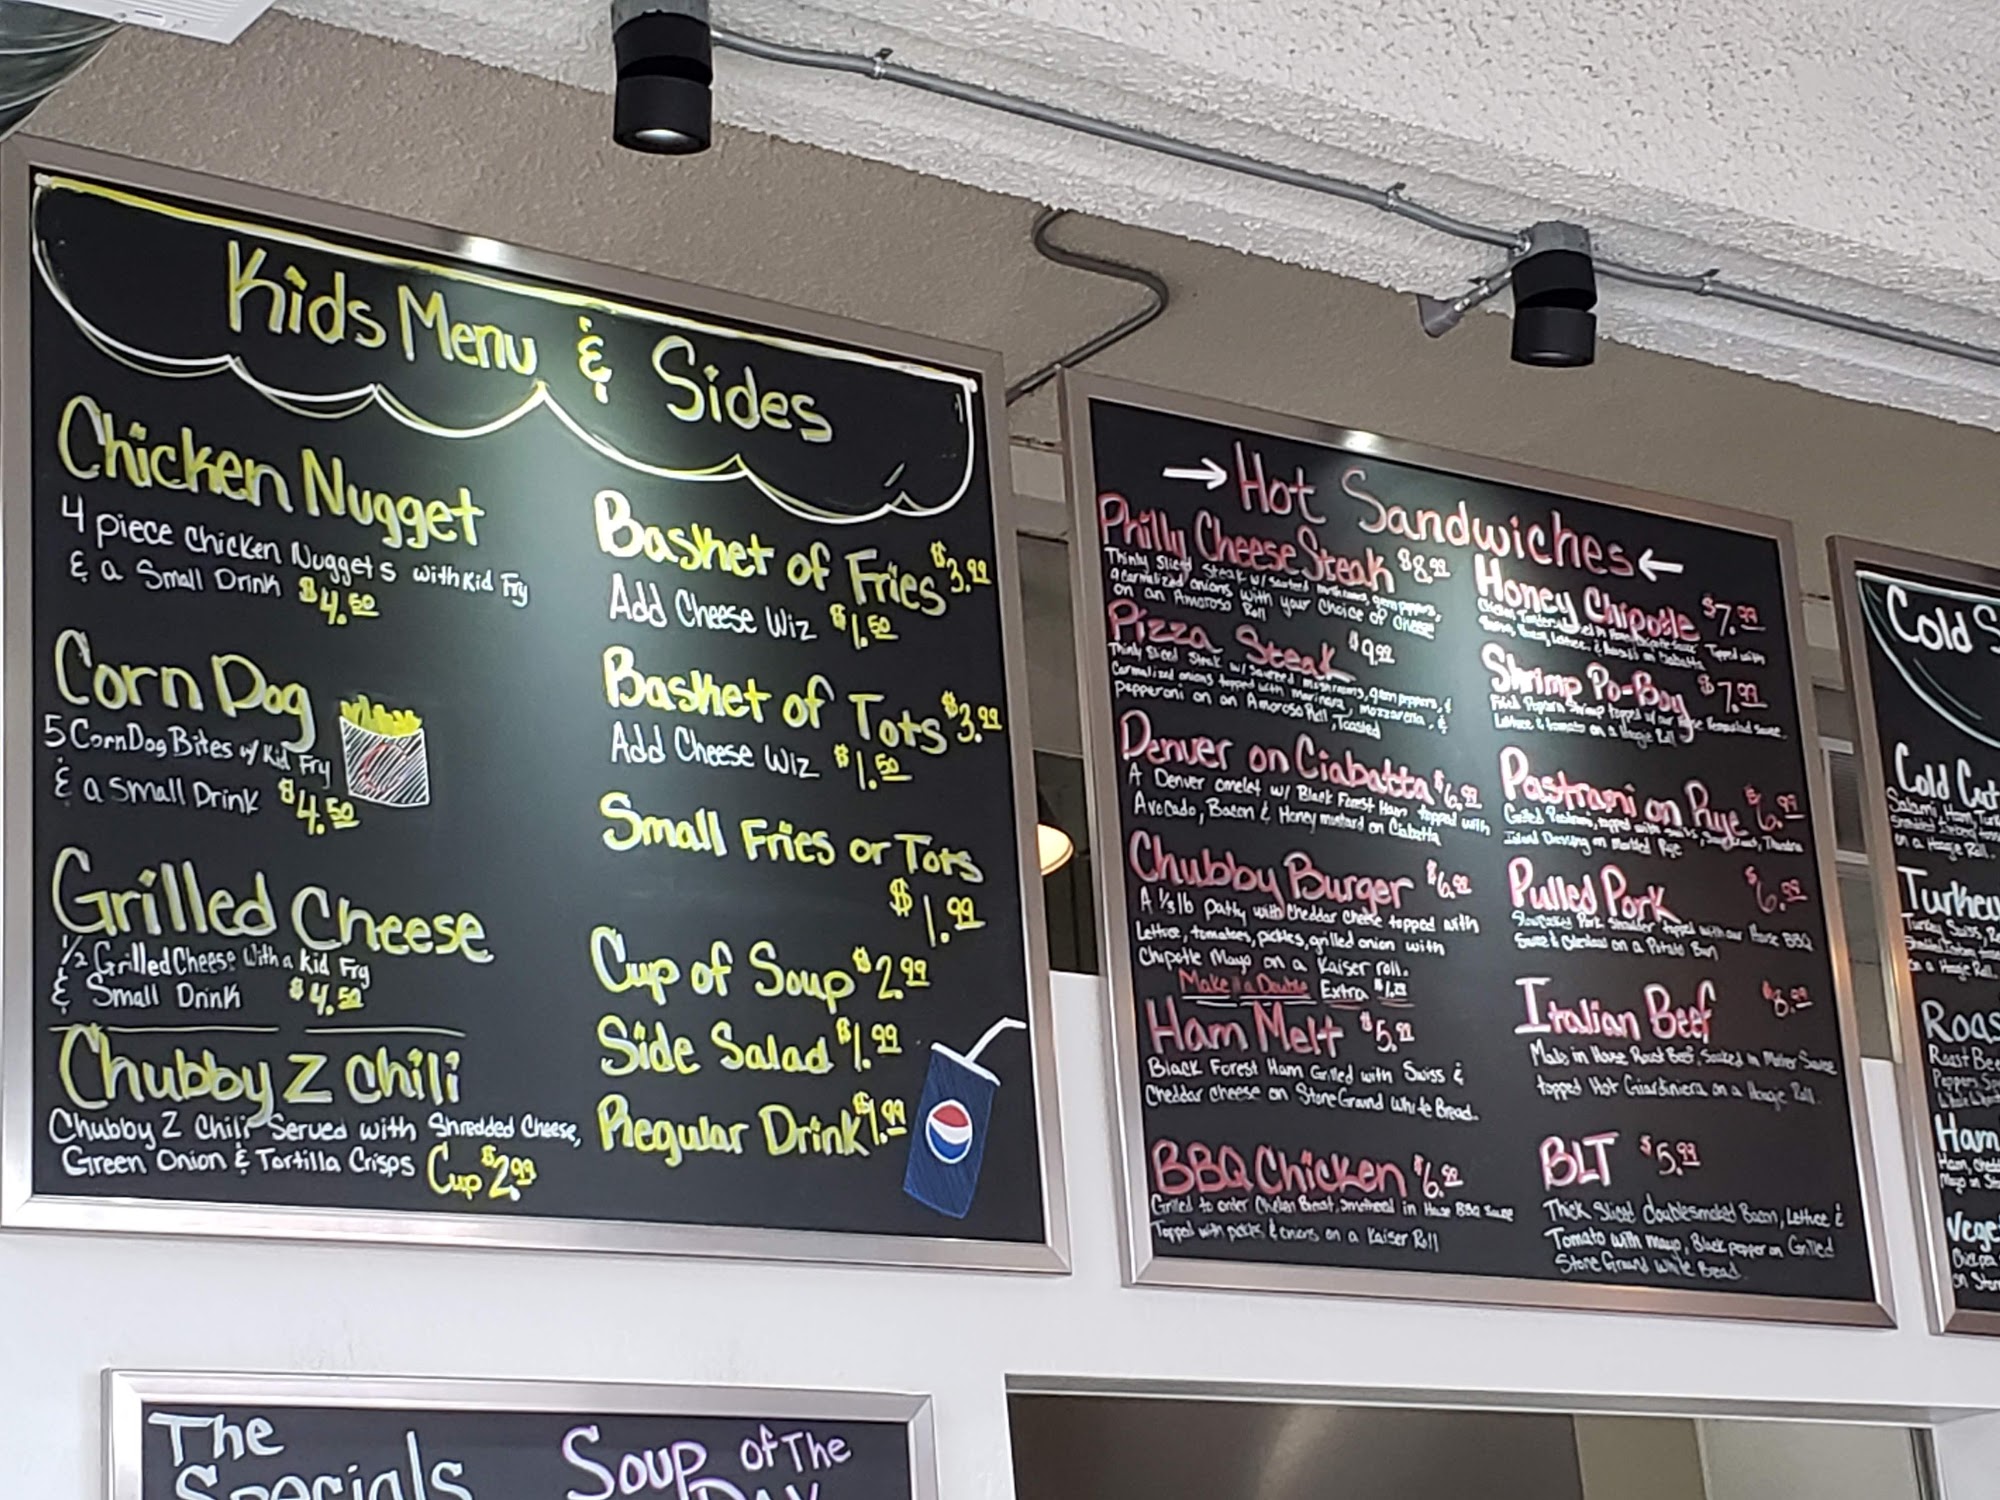 Kids Menu & Sides
Chicken Nugget
4 piece Chicken Nuggets with Kid Fry
& a Small Drink $4.50
Corn Dog
5 Corn Dog Bites w/ Kid Fry
& a Small Drink $4.50
Grilled Cheese
1/2 Grilled Cheese With a Kid Fry
& Small Drink $4.50
Chubby Z Chili
Chubby Z Chili Served with Shredded Cheese,
Green Onion & Tortilla Crisps Cup $2.99
Basket of Fries $3.99
Add Cheese Wiz $1.50
Basket of Tots $3.99
Add Cheese Wiz $1.50
Small Fries or Tots
$1.99
Cup of Soup $2.99
Side Salad $1.99
Regular Drink $1.99
→ Hot Sandwiches ←
Philly Cheese Steak $8.99
Thinly Sliced Steak w/ Sauteed mushrooms, green peppers,
& carmalized onions with your Choice of Cheese
on an Amoroso Roll
Pizza Steak $9.99
Thinly Sliced Steak w/ Sauteed Mushrooms, green peppers, &
Carmalized onions topped with Marinara, Mozzarella, &
Pepperoni on an Amoroso Roll, Toasted
Denver on Ciabatta $6.99
A Denver omelet w/ Black Forest Ham topped with
Avocado, Bacon & Honey mustard on Ciabatta
Chubby Burger $6.99
A 1/3 lb patty with Cheddar Cheese topped with
Lettuce, tomatoes, pickles, grilled onion with
Chipotle Mayo on a Kaiser roll.
Make it a Double Extra
Ham Melt $5.99
Black Forest Ham Grilled with Swiss &
Cheddar cheese on Stone Ground White Bread.
BBQ Chicken $6.99
Grilled to order Chicken Breast, Smothered in House BBQ Sauce
Topped with pickles & onions on a Kaiser Roll
Honey Chipotle $7.99
Chicken Tenders in Honey Chipotle Sauce Topped with
Lettuce, & on Ciabatta
Shrimp Po-Boy $7.99
Fried Popcorn Shrimp topped w/ our House Remoulad Sauce
Lettuce & tomato on a Hoagie Roll
Pastrami on Rye $6.99
Grilled Pastrami, topped with Swiss, Sauerkraut, Thousand
Island Dressing on Marbled Rye
Pulled Pork $6.99
Slow Cooked Pork Shoulder topped with our House BBQ
Sauce & Coleslaw on a Potato Bun
Italian Beef $8.99
Made in House Roast Beef, Soaked in Mother Sauce
topped Hot Giardiniera on a Hoagie Roll
BLT $5.99
Thick Sliced doublesmoked Bacon, Lettuce &
Tomato with mayo, Black pepper on Grilled
Stone Ground White Bread
Cold S
Cold Cut
Salami, Ham, Turk
on a Hoagie Roll.
Turkey
Turkey, Swiss,
on a Hoagie Roll
Roas
Roast Bee
Ham
Mayo on
Vege
on Ston
The
Specials
Soup of The
Day